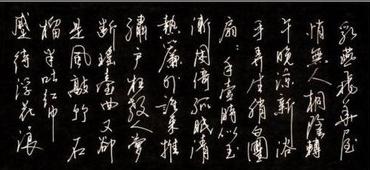 乳燕飛華屋
悄無人桐陰轉
午晚涼新浴
手弄生綃白團
扇扇手一時似玉
漸困倚孤眠清
熟簾外誰來推
繡戶枉教人夢
斷瑤臺曲又卻
是風敲竹石
榴半吐紅巾
蹙待浮花浪